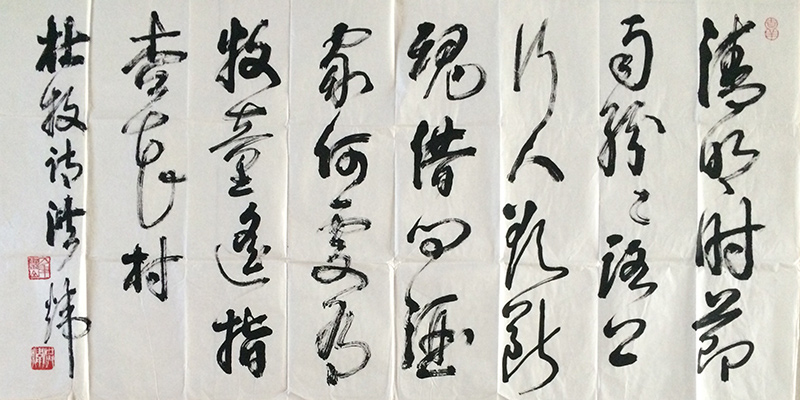 清明时节
雨纷々路上
行人欲断
魂借问酒
家何处有
牧童遥指
杏花村
杜牧诗